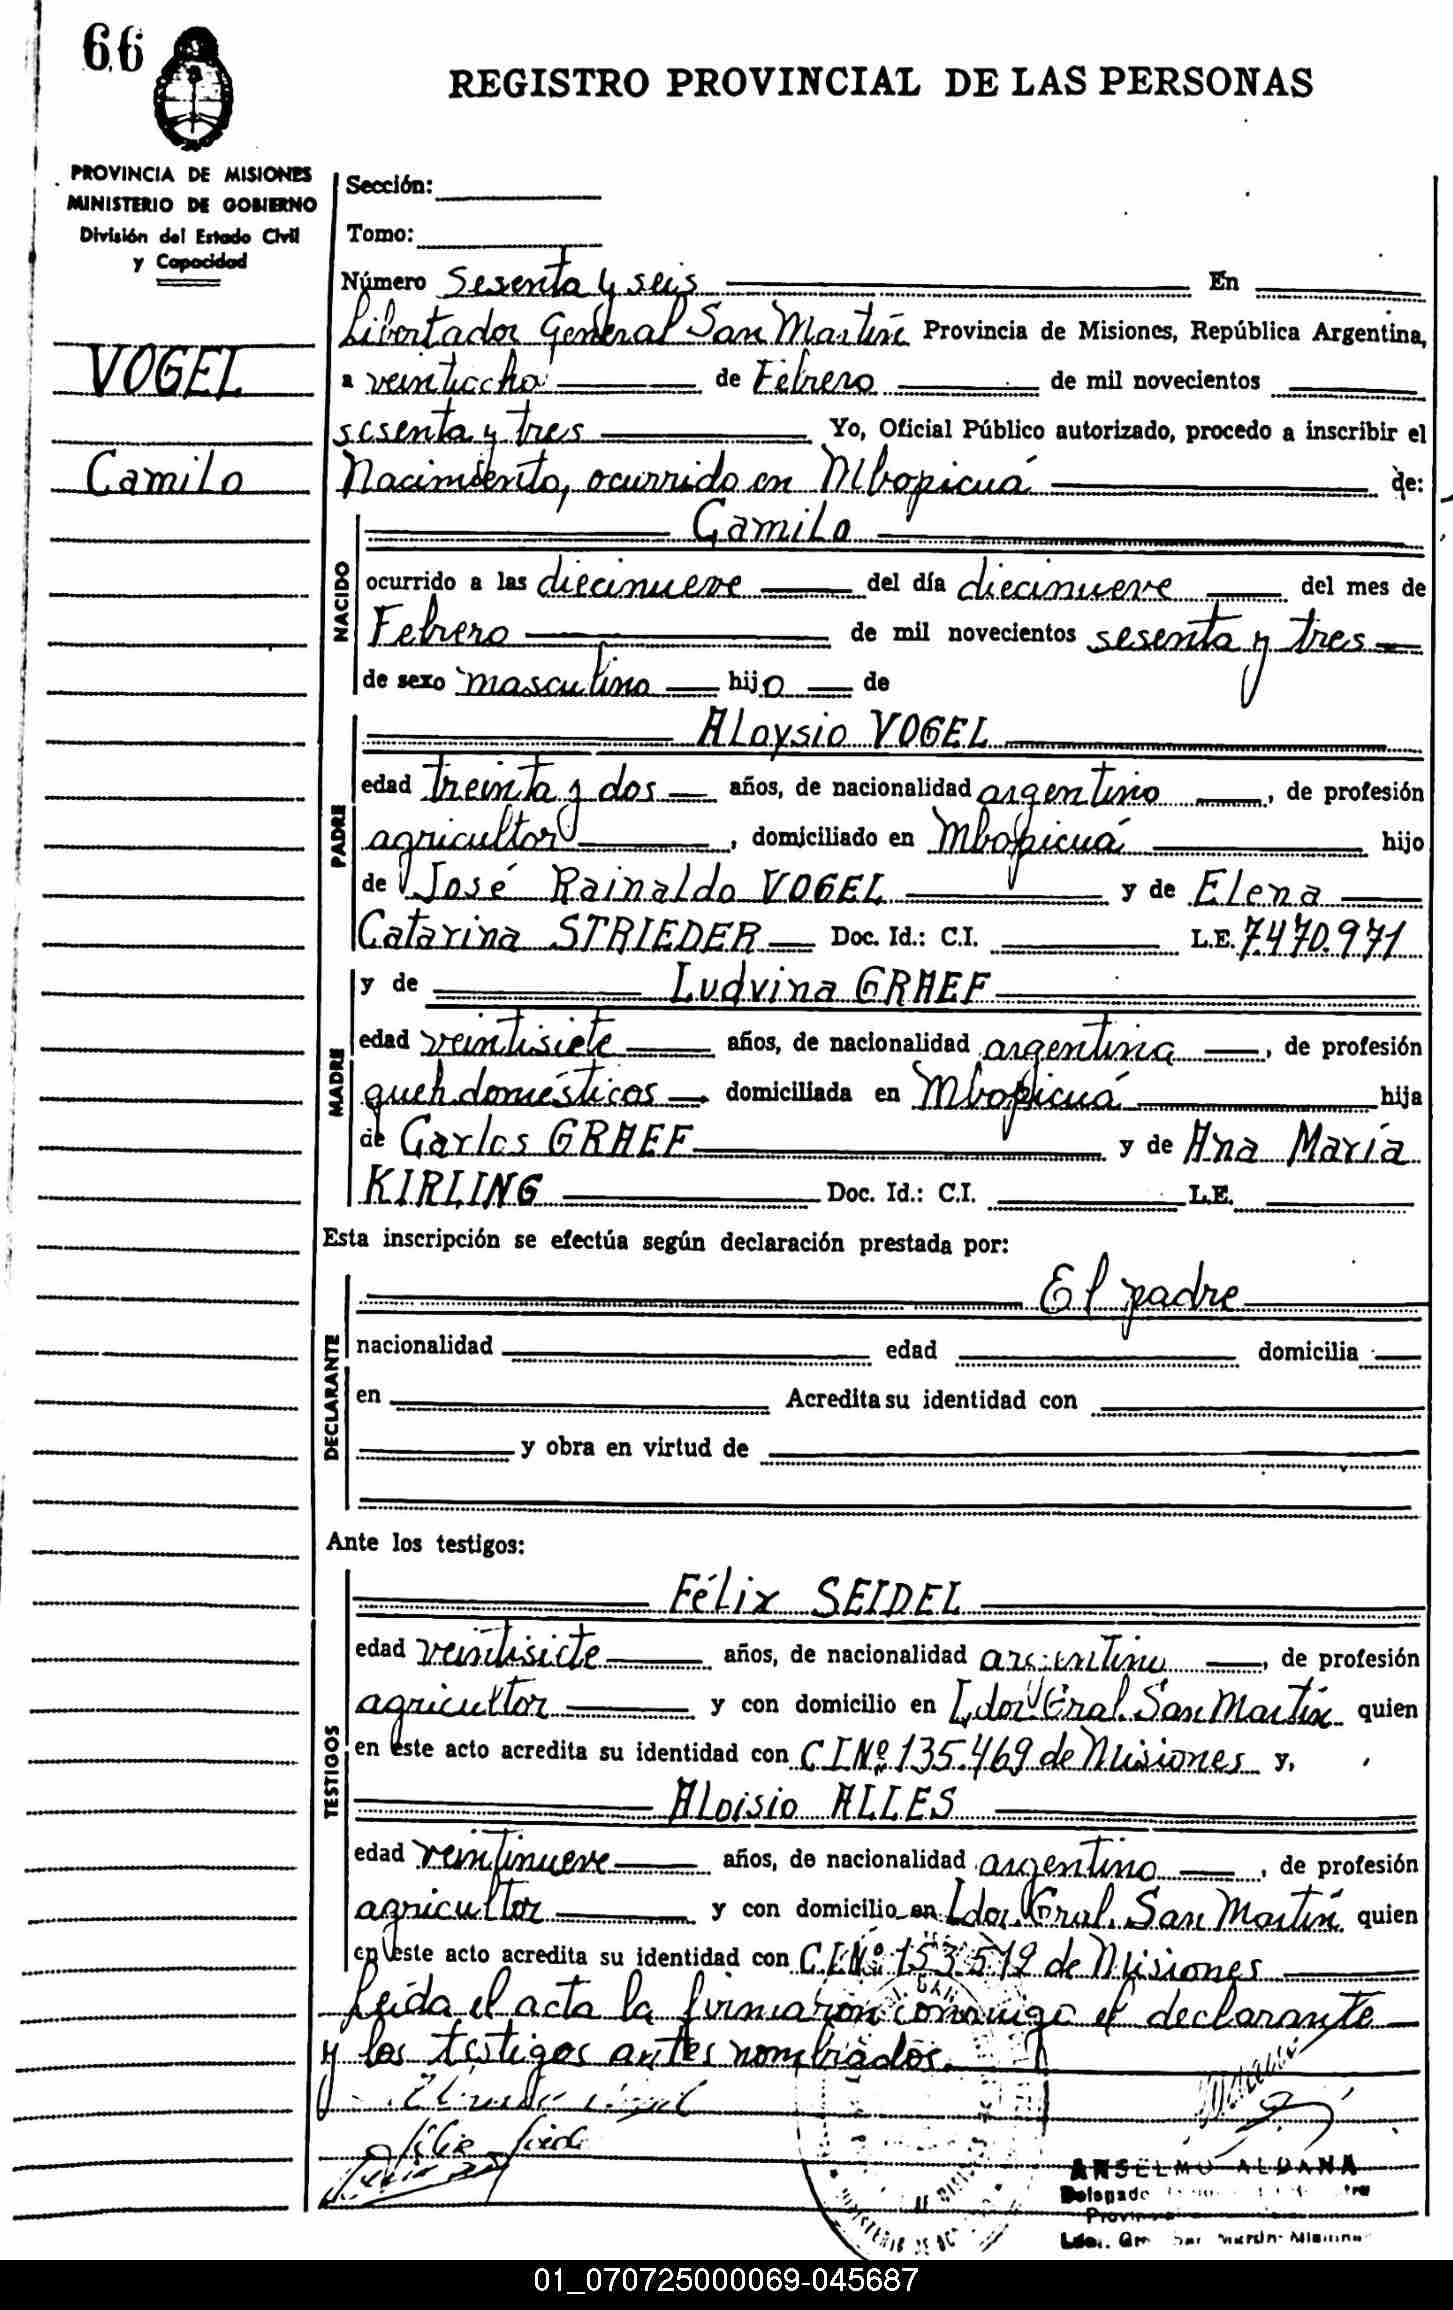 66
REGISTRO PROVINCIAL DE LAS PERSONAS
PROVINCIA DE MISIONES
MINISTERIO DE GOBIERNO
División del Estado Civil
y Capacidad
VOGEL
Camilo
Sección:
Tomo:
Número Sesenta y seis En
Libertador General San Martín Provincia de Misiones, República Argentina,
a veintiocho de Febrero de mil novecientos
sesenta y tres Yo, Oficial Público autorizado, procedo a inscribir el
Nacimiento, ocurrido en Mbopicuá de:
NACIDO
Camilo
ocurrido a las diecinueve del día diecinueve del mes de
Febrero de mil novecientos sesenta y tres
de sexo masculino hijo de
PADRE
Aloysio VOGEL
edad treinta y dos años, de nacionalidad argentino, de profesión
agricultor, domiciliado en Mbopicuá hijo
de José Rainaldo VOGEL y de Elena
Catarina STRIEDER Doc. Id.: C.I. L.E. 7470.971
MADRE
y de Ludvina GRAEF
edad veintisiete años, de nacionalidad argentina, de profesión
queh.domésticos domiciliada en Mbopicuá hija
de Carlos GRAEF y de Ana María
KIRLING Doc. Id.: C.I. L.E.
Esta inscripción se efectúa según declaración prestada por:
DECLARANTE
El padre
nacionalidad edad domicilia
en Acredita su identidad con
y obra en virtud de
Ante los testigos:
TESTIGOS
Félix SEIDEL
edad veintisiete años, de nacionalidad argentino, de profesión
agricultor y con domicilio en Ldor. Gral. San Martín quien
en este acto acredita su identidad con C.I.Nº 135.469 de Misiones y,
Aloisio ALLES
edad veintinueve años, de nacionalidad argentino, de profesión
agricultor y con domicilio en Ldor. Gral. San Martín quien
en este acto acredita su identidad con C.I.Nº 153.512 de Misiones
Leída el acta la firmaron conmigo el declarante
y los testigos antes nombrados.
ANSELMO ALDANA
Delegado
01_070725000069-045687